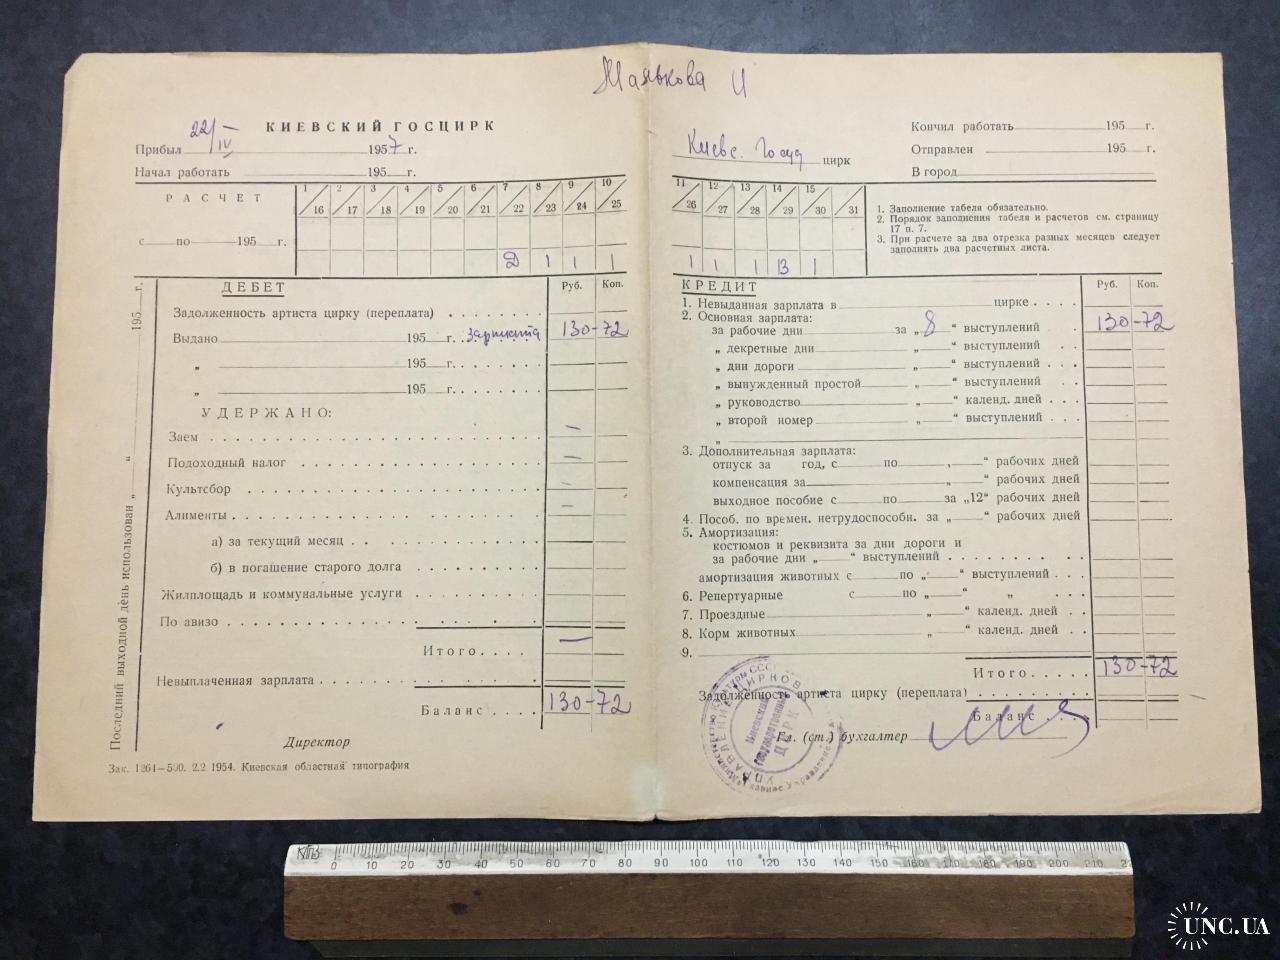 Маяцкова И
КИЕВСКИЙ ГОСЦИРК
Прибыл 22/IV 1957 г.
Начал работать 195 г.
Киевс. Госуд цирк
Кончил работать 195 г.
Отправлен 195 г.
В город
РАСЧЕТ
с по 195 г.
1/16 2/17 3/18 4/19 5/20 6/21 7/22 8/23 9/24 10/25
Д 1 1 1
11/26 12/27 13/28 14/29 15/30 31
1 1 1 В 1
1. Заполнение табеля обязательно.
2. Порядок заполнения табеля и расчетов см. страницу 17 п. 7.
3. При расчете за два отрезка разных месяцев следует заполнять два расчетных листа.
Последний выходной день использован „ “ 195 г.
ДЕБЕТ Руб. Коп.
Задолженность артиста цирку (переплата)
Выдано 195 г. Зарплата 130-72
„ 195 г.
„ 195 г.
УДЕРЖАНО:
Заем —
Подоходный налог —
Культсбор —
Алименты —
а) за текущий месяц
б) в погашение старого долга
Жилплощадь и коммунальные услуги
По авизо
Итого —
Невыплаченная зарплата
Баланс 130-72
Директор
Зак. 1261—500. 2.2 1954. Киевская областная типография
КРЕДИТ Руб. Коп.
1. Невыданная зарплата в цирке
2. Основная зарплата:
за рабочие дни за „8“ выступлений 130-72
„ декретные дни „ “ выступлений
„ дни дороги „ “ выступлений
„ вынужденный простой „ “ выступлений
„ руководство „ “ календ. дней
„ второй номер „ “ выступлений
„
3. Дополнительная зарплата:
отпуск за год, с по „ “ рабочих дней
компенсация за „ “ рабочих дней
выходное пособие с по за „12“ рабочих дней
4. Пособ. по времен. нетрудоспособн. за „ “ рабочих дней
5. Амортизация:
костюмов и реквизита за дни дороги и
за рабочие дни „ “ выступлений
амортизация животных с по „ “ выступлений
6. Репертуарные с по „ “ „
7. Проездные „ “ календ. дней
8. Корм животных „ “ календ. дней
9.
Итого 130-72
Задолженность артиста цирку (переплата)
Баланс
Гл. (ст.) бухгалтер
Министерство культуры СССР
УПРАВЛЕНИЕ ЦИРКОВ
Киевский
государственный
ЦИРК
0 10 20 30 40 50 60 70 80 90 100 110 120 130 140 150 160 170 180 190 200 210
UNC.UA